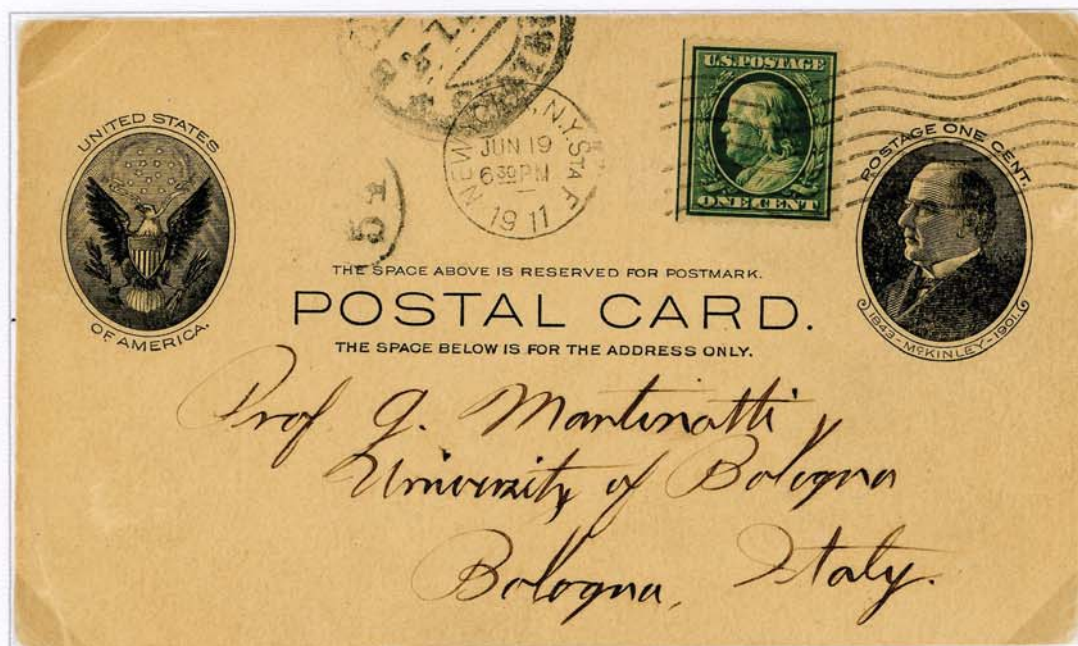 UNITED STATES
OF AMERICA.
NEW YORK, N.Y. STA F
JUN 19
6 30 PM
1911
U.S. POSTAGE
ONE CENT
POSTAGE ONE CENT.
1843-McKINLEY-1901.
51
THE SPACE ABOVE IS RESERVED FOR POSTMARK.
POSTAL CARD.
THE SPACE BELOW IS FOR THE ADDRESS ONLY.
Prof. G. Martinotti,
University of Bologna
Bologna, Italy.